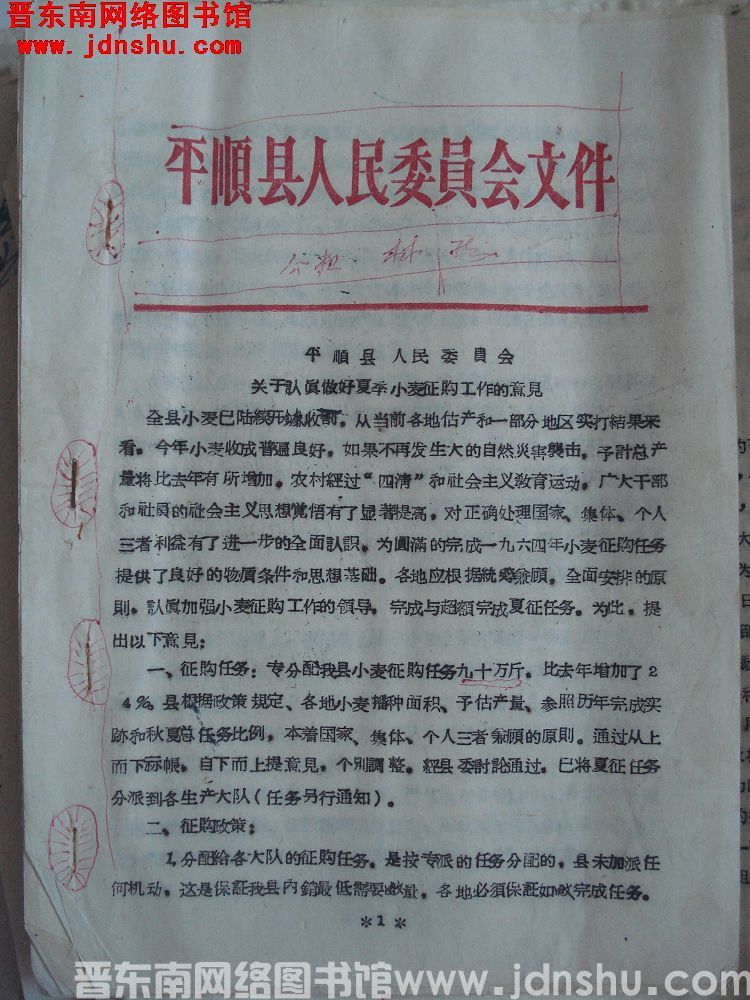 晋东南网络图书馆
www.jdnshu.com
平順县人民委員会文件
平順县人民委員会
关于认眞做好夏季小麦征购工作的意見
全县小麦已陆續开鐮收割。从当前各地估产和一部分地区实打結果来
看。今年小麦收成普遍良好。如果不再发生大的自然災害襲击，予計总产
量将比去年有所增加。农村經过“四清”和社会主义敎育运动，广大干部
和社員的社会主义思想覚悟有了显著提高。对正确处理国家、集体、个人
三者利益有了进一步的全面認識。为圓滿的完成一九六四年小麦征购任务
提供了良好的物质条件和思想基础。各地应根据統筹兼顾，全面安排的原
則。认眞加强小麦征购工作的领导。完成与超額完成夏征任务。为此，提
出以下意見：
一、征购任务：专分配我县小麦征购任务九十万斤。比去年增加了2
4%。县根据政策规定、各地小麦播种面积、予估产量、参照历年完成实
跡和秋夏总任务比例，本着国家、集体、个人三者兼顾的原則。通过从上
而下标帳，自下而上提意見，个別調整。經县委討論通过，已将夏征任务
分派到各生产大队（任务另行通知）。
二、征购政策：
1，分配給各大队的征购任务，是按专派的任务分配的，县未加派任
何机动。这是保証我县内銷最低需要数量。各地必須保証如数完成任务。
*1*
晋东南网络图书馆www.jdnshu.com